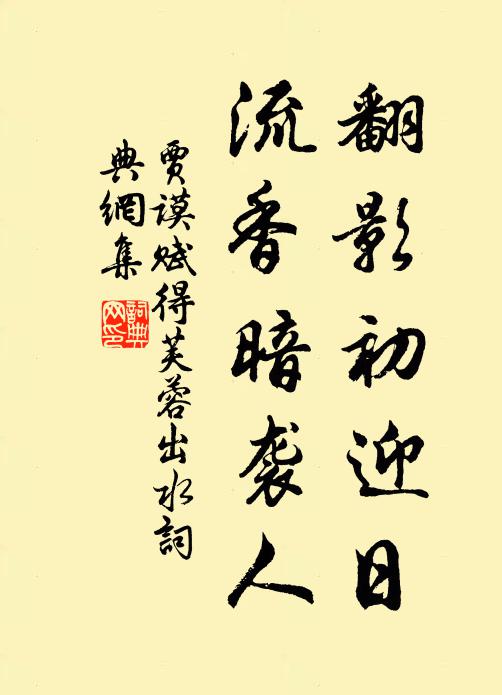 翻影初迎日
流香暗袭人
贾谟赋得芙蓉出水词
典網集
詞典网印